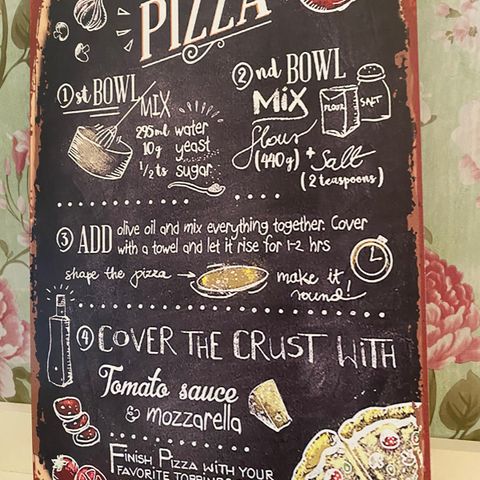 PIZZA
1st BOWL
MIX
295ml water
10g yeast
1/2 ts sugar
2nd BOWL
MiX
FLOUR
SALT
flour +
(440g) Salt
(2 teaspoons)
3 ADD olive oil and mix everything together. Cover
with a towel and let it rise for 1-2 hrs
shape the pizza → make it
round!
4 COVER THE CRUST WITH
Tomato sauce
& mozzarella
FINISH PIZZA WITH YOUR
FAVORITE TOPPINGS